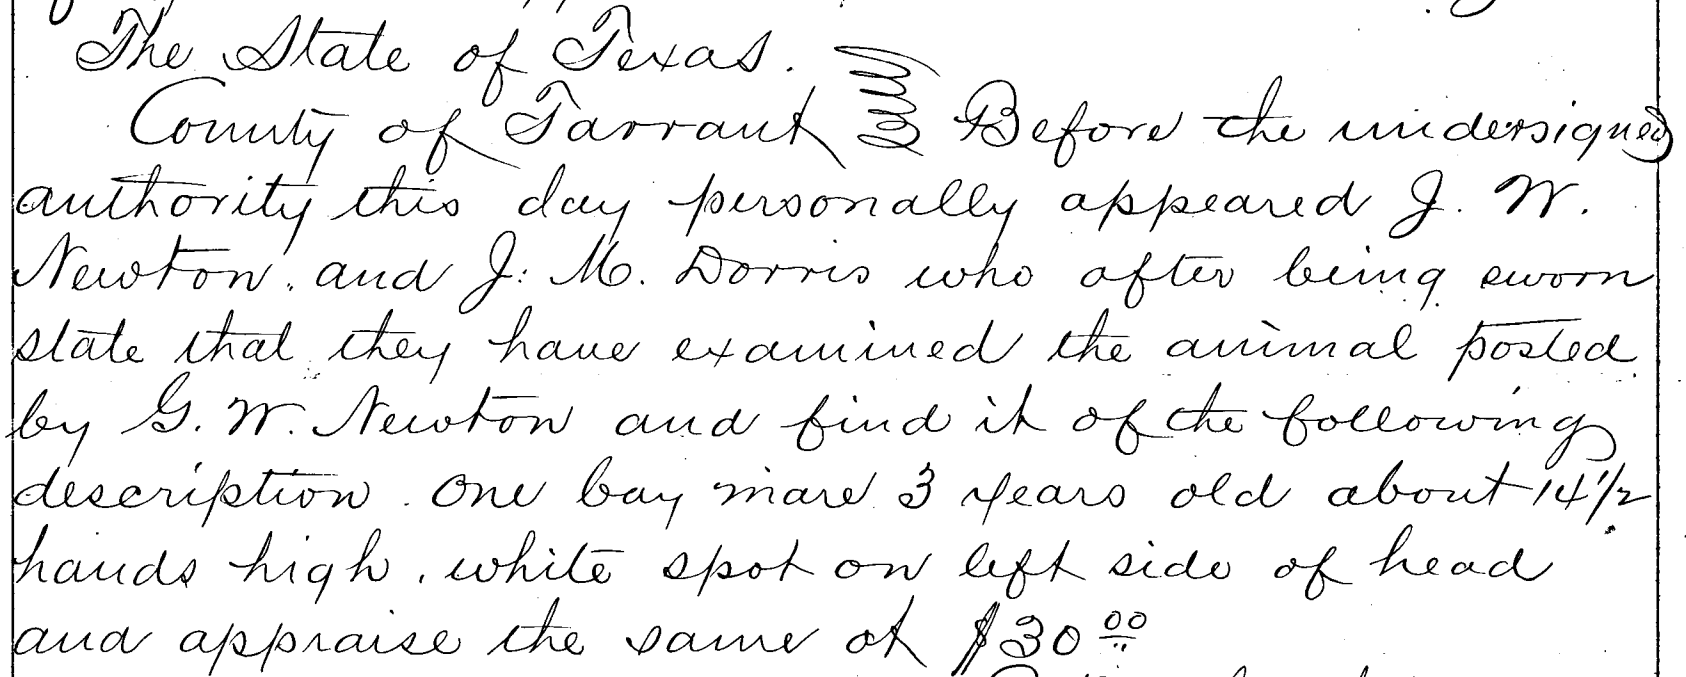 The State of Texas.
County of Tarrant Before the undersigned
authority this day personally appeared J. W.
Newton. and J. M. Dorris who after being sworn
state that they have examined the animal posted
by G. W. Newton and find it of the following
description. One bay mare 3 years old about 14 1/2
hands high. white spot on left side of head
and appraise the same at $30 00